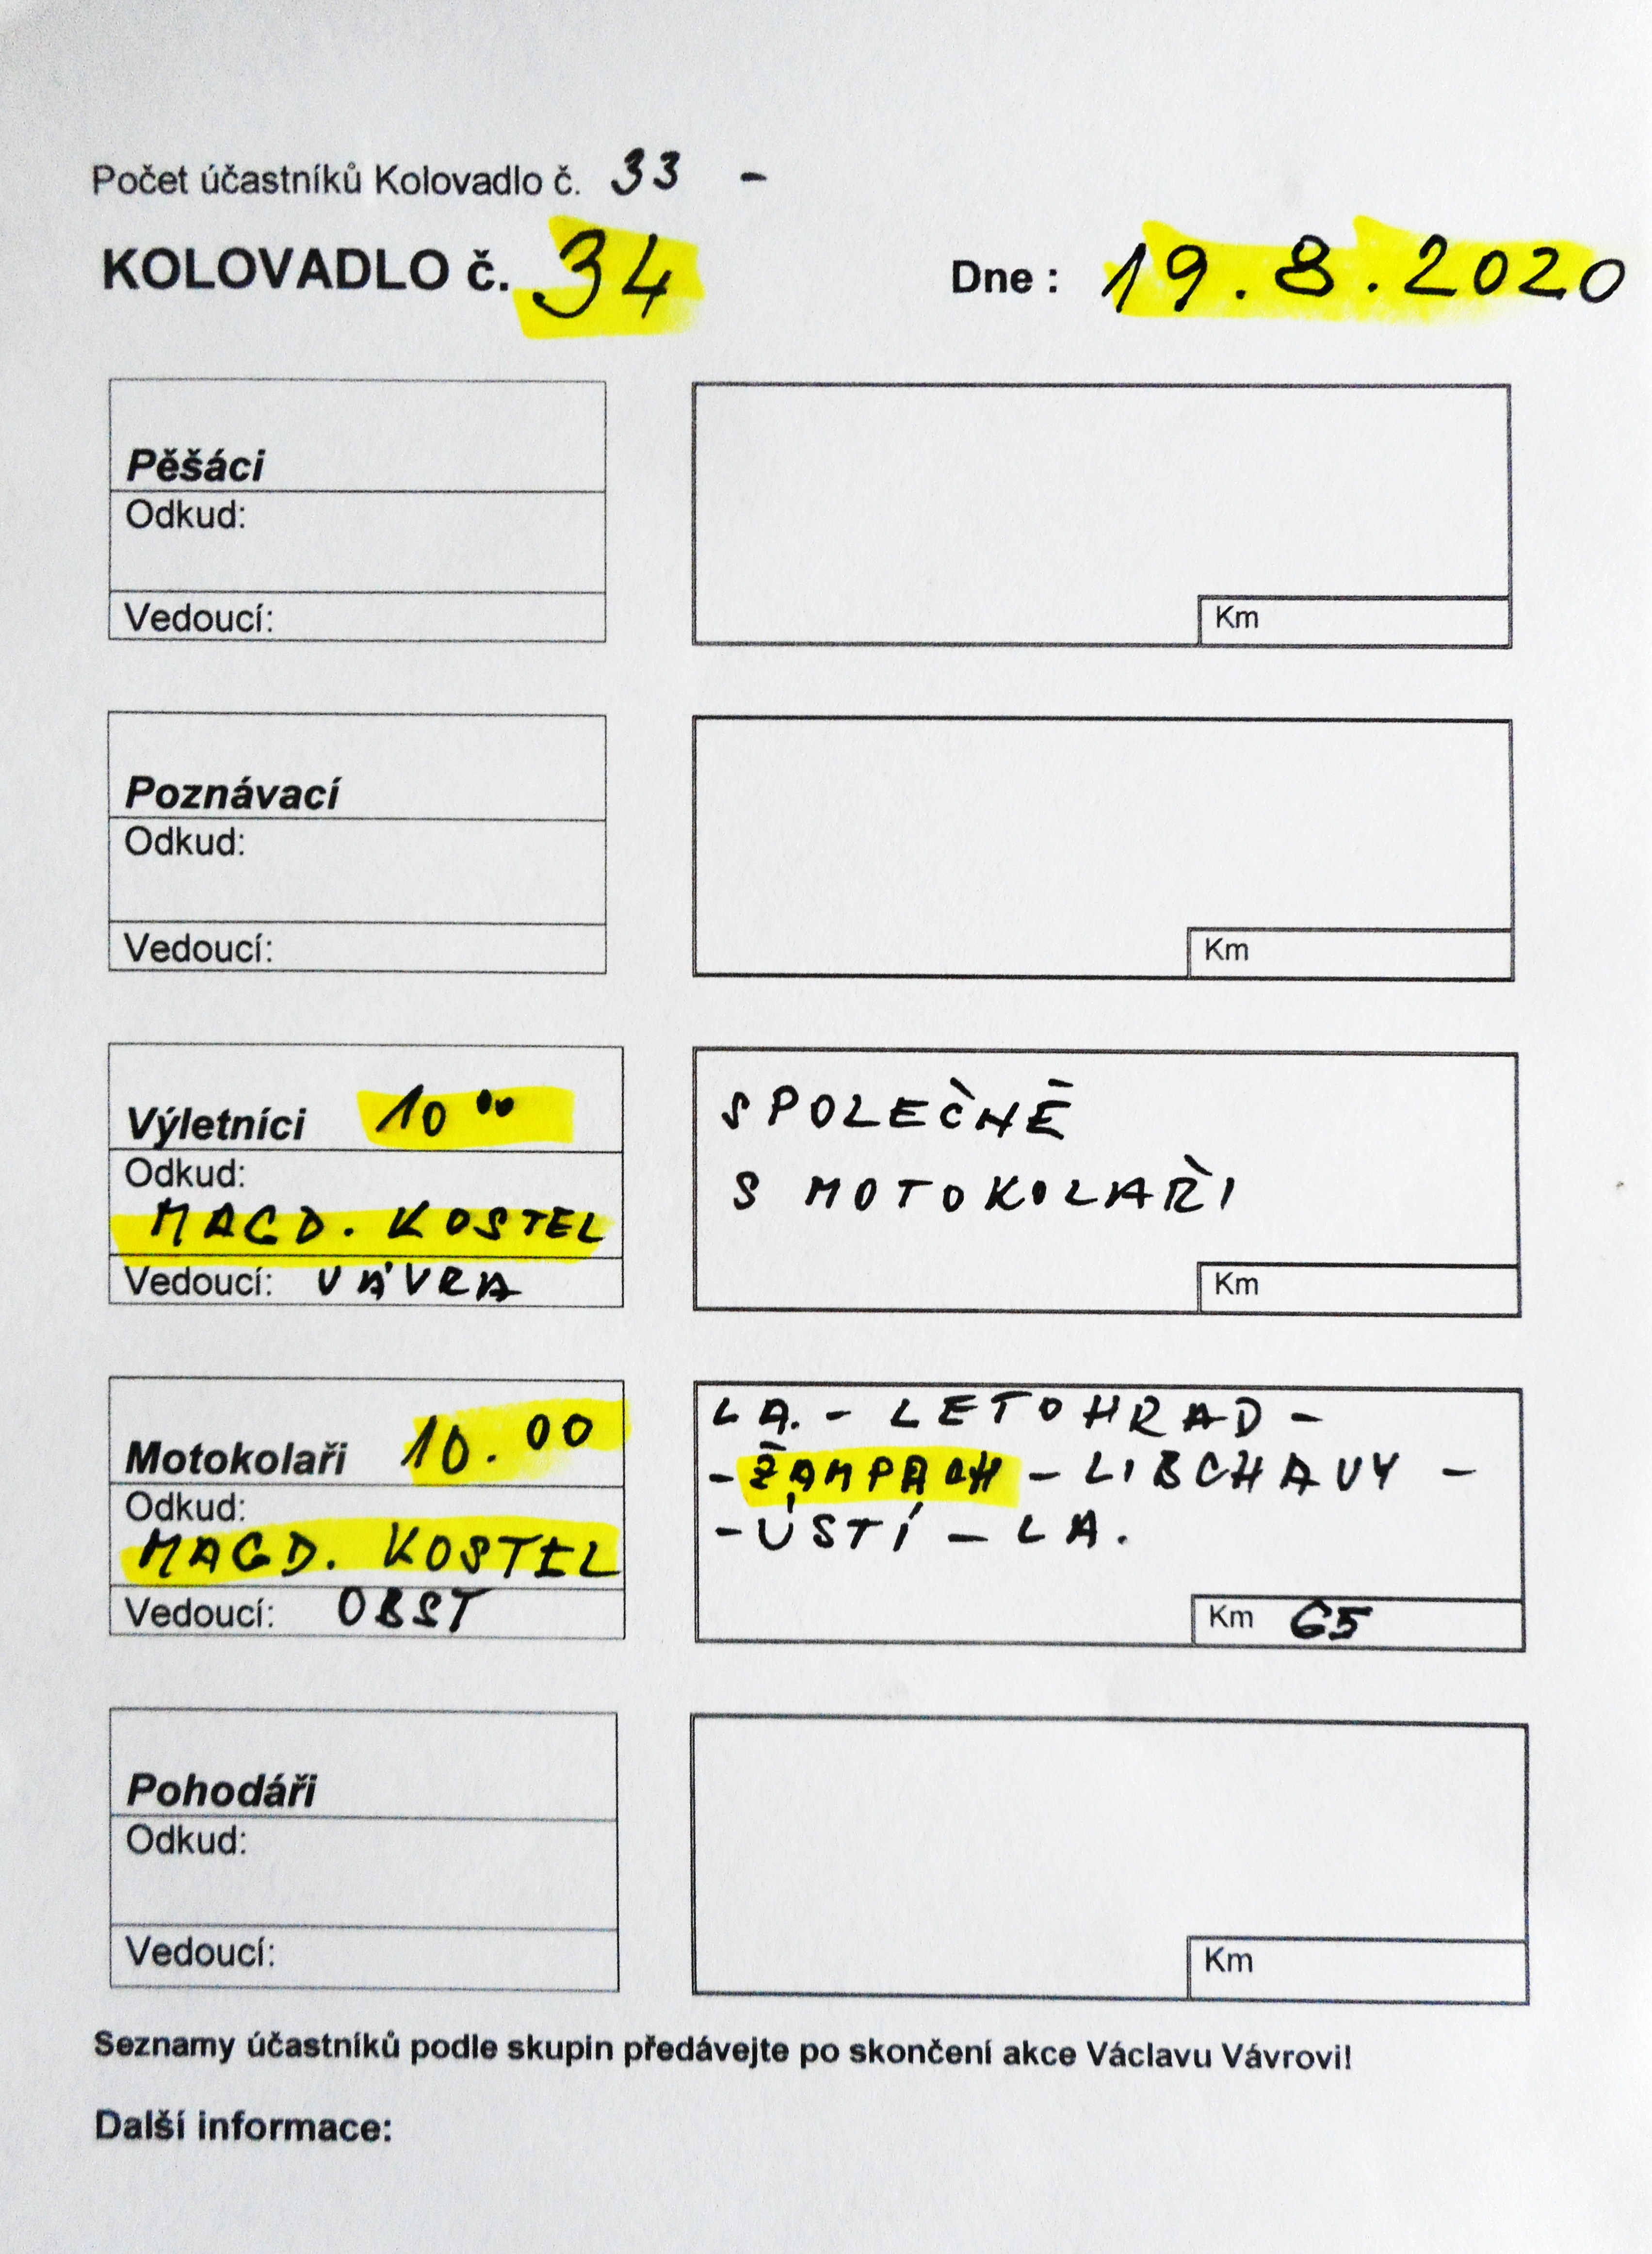 Počet účastníků Kolovadlo č. 33 -
KOLOVADLO č. 34 Dne : 19.8.2020
Pěšáci
Odkud:
Vedoucí:
Km
Poznávací
Odkud:
Vedoucí:
Km
Výletníci 10 00
Odkud:
MAGD. KOSTEL
Vedoucí: VÁVRA
SPOLEČNĚ
S MOTOKOLAŘI
Km
Motokolaři 10.00
Odkud:
MAGD. KOSTEL
Vedoucí: OBST
LA. - LETOHRAD -
- ŽAMPACH - LIBCHAVY -
- ÚSTÍ - LA.
Km 65
Pohodáři
Odkud:
Vedoucí:
Km
Seznamy účastníků podle skupin předávejte po skončení akce Václavu Vávrovi!
Další informace: